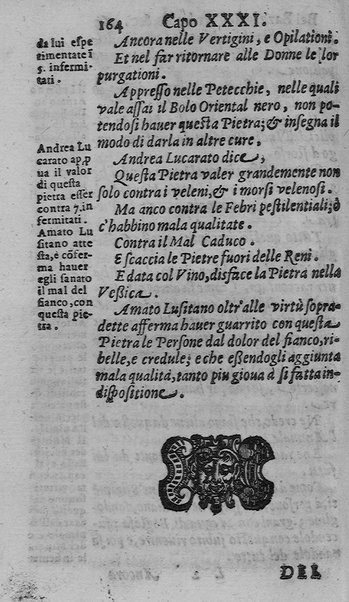 164 Capo XXXI.
da lui espe
rimentate ī
5. infermi-
tati.
Ancora nelle Vertigini, e Opilationi.
Et nel far ritornare alle Donne le lor
purgationi.
Appresso nelle Petecchie, nelle quali
vale assai il Bolo Oriental nero, non po-
tendosi hauer questa Pietra; & insegna il
modo di darla in altre cure.
Andrea Lu
carato ap,p
ua il valor
di questa
pietra esser
contra 7. in
fermitati.
Amato Lu
sitano atte
sta, e cōfer-
ma hauer
egli sanato
il mal del
fianco, con
questa pie-
tra.
Andrea Lucarato dice,
Questa Pietra valer grandemente non
solo contra i veleni, & i morsi velenosi.
Ma anco contra le Febri pestilentiali; ò
c'habbino mala qualitate.
Contra il Mal Caduco.
E scaccia le Pietre fuori delle Reni.
E data col Vino, disface la Pietra nella
Vessica.
Amato Lusitano oltr'alle virtù sopra-
dette afferma hauer guarrito con questa
Pietra le Persone dal dolor del fianco, ri-
belle, e credule; e che essendogli aggiunta
mala qualità, tanto piu gioua à sì fatta in-
dispositione.
DEL